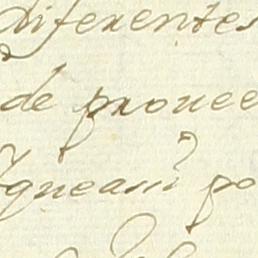 diferentes
de prouee
queassi po